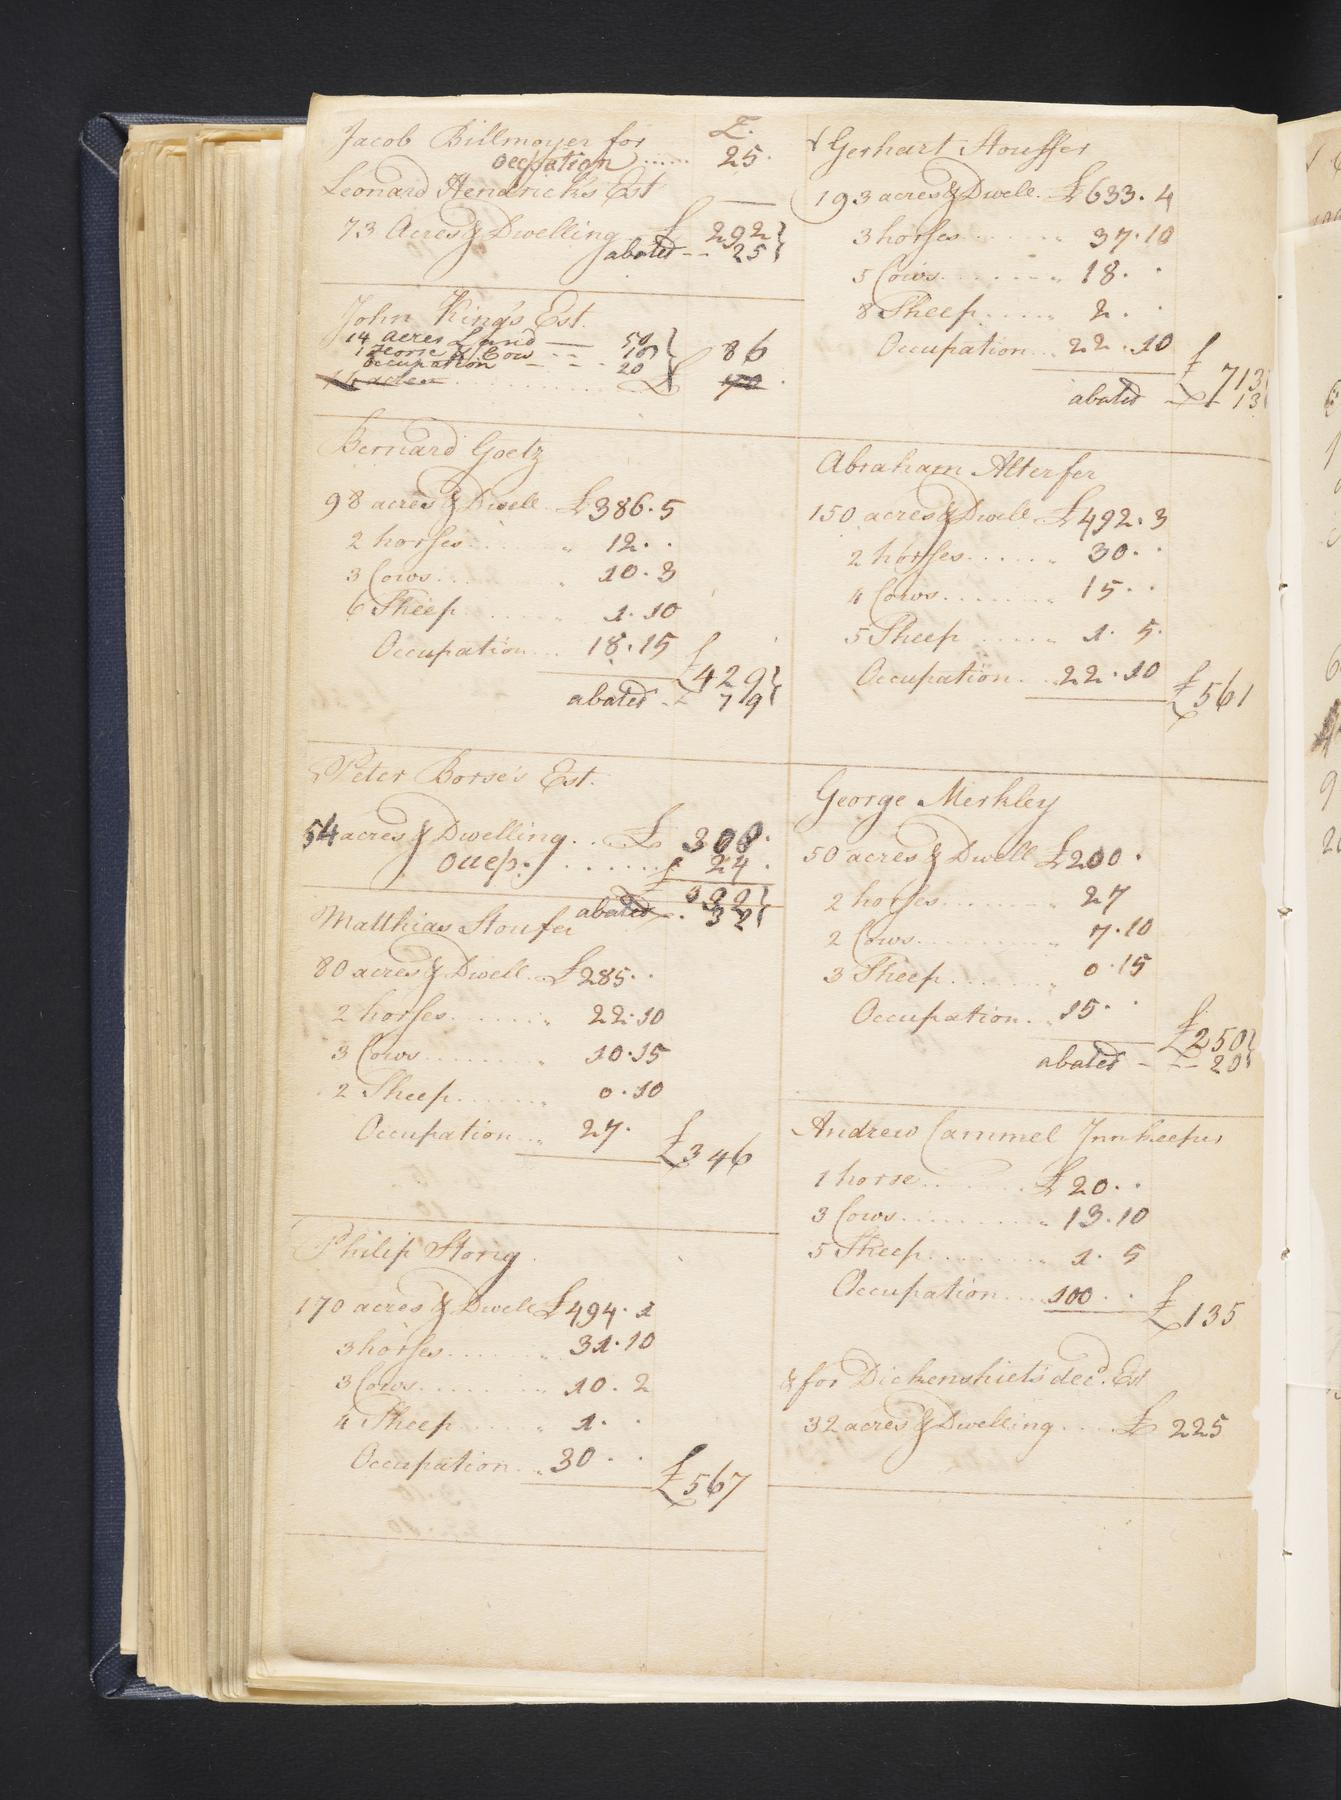 £.
Jacob Billmoyer for
Occpation ...... 25.
Leonard Hendrick's Est
73 Acres & Dwelling £ 292
abated -- 25
John King's Est.
14 acres Land — 50
1 Horse & Cow -- 16
occupation - - - 20
£ 86
14 acres ............ £ 70.
Bernard Goetz
98 acres & Dwell £386.5
2 horses....... " 12. .
3 Cows.... " 10.3
6 Sheep....... 1.10
Occupation... 18.15
£429
abated -- 79
Peter Borse's Est.
54 acres & Dwelling... £ 308.
Ouep: ....... £ 24.
332
abated -- 32
Matthias Stoufer
80 acres & Dwell. £285. .
2 horses....... " 22.10
3 Cows....... " 10.15
2 Sheep....... " 0.10
Occupation... " 27.
£346
Philip Storig.
170 acres & Dwell £494.1
3 horses....... " 31.10
3 Cows....... " 10.2
4 Sheep....... " 1. .
Occupation. " 30. .
£567
Gerhart Stouffer
193 acres & Dwell. £633.4
3 horses....... " 37.10
5 Cows....... " 18. .
8 Sheep....... " 2. .
Occupation... 22.10
£713
abated -- 13
Abraham Alterfer
150 acres & Dwell £492.3
2 horses...... " 30. .
4 Cows....... " 15. .
5 Sheep....... " 1. 5.
Occupation... 22.10
£561
George Merkley
50 acres & Dwell £200.
2 horses....... " 27
2 Cows....... " 7.10
3 Sheep....... " 0.15
Occupation.. " 15. .
£250
abated - -- 20
Andrew Cammel Innkeeper
1 horse....... £20. .
3 Cows....... " 13.10
5 Sheep....... " 1. 5
Occupation.... 100. .
£135
& for Dickenshiet's decd. Est
32 acres & Dwelling.... £ 225